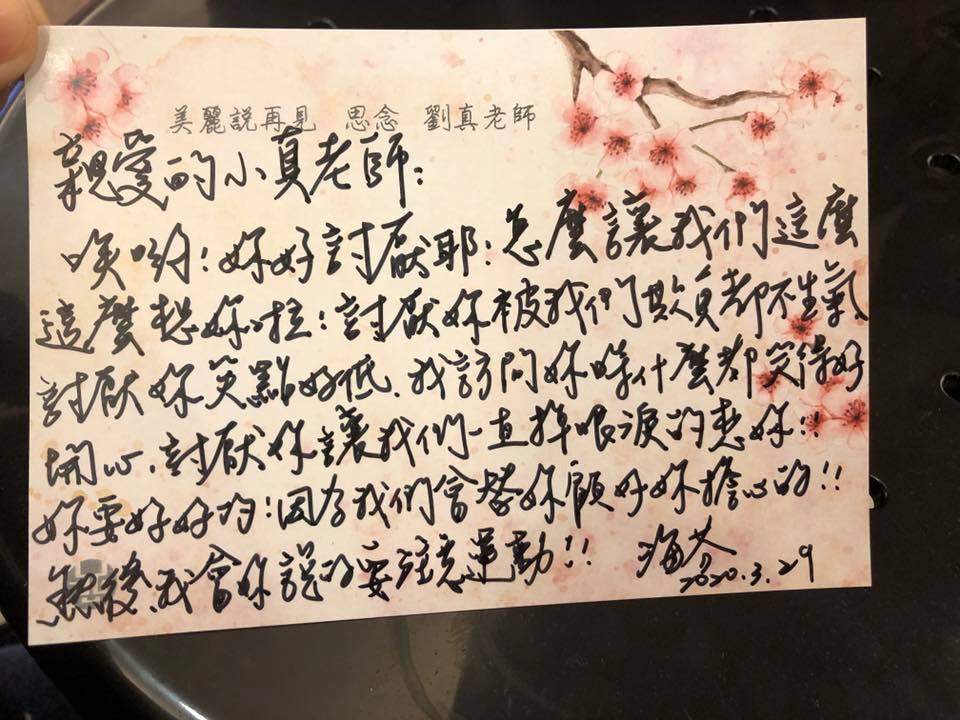 美麗說再見 思念 劉真老師
親愛的小真老師:
唉喲!妳好討厭耶!怎麼讓我們這麼
這麼想妳啦!討厭妳被我們欺負都不生氣
討厭妳笑點好低、我訪問妳時什麼都笑得好
開心、討厭妳讓我們一直掉眼淚的想妳!!
妳要好好的!因為我們會替妳顧好妳擔心的!!
然後、我會妳說的要注意運動!!
2020.3.29